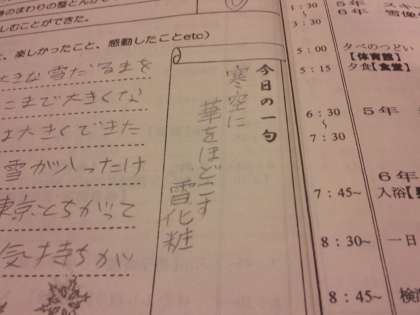 のまわりの整とんが
しむことができた。
、楽しかったこと、感動したことetc)
今日の一句
寒空に
華をほどこす
雪化粧
大きな雪だるまを
こまで大きくな
は大きくできた
雪が少ったけ
東京とちがって
気持ちがい
1:30~
3:30
5:00 夕べのつどい
【体育館】
5:15 夕食【食堂】
6:30 5年
~
7:30
6年
7:45~ 入浴【
8:30~ 一日
8:45~ 検
5年 スキー
6年 雪像